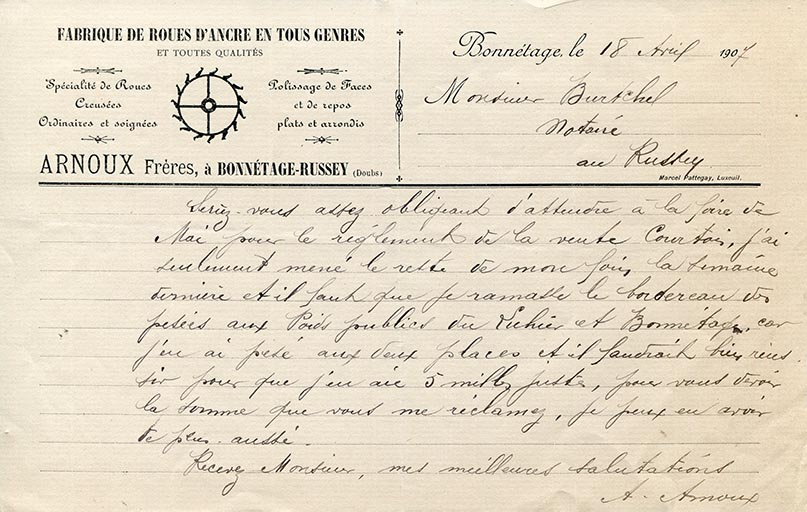 FABRIQUE DE ROUES D'ANCRE EN TOUS GENRES
ET TOUTES QUALITÉS
Spécialité de Roues
Creusées
Ordinaires et soignées
Polissage de Faces
et de repos
plats et arrondis
ARNOUX Frères, à BONNÉTAGE-RUSSEY (Doubs)
Bonnétage, le 18 Avril 1907
Monsieur Burtchel
Notaire
au Russey
Marcel Pattegay, Luxeuil.
Seriez-vous assez obligeant d'attendre à la foire de
Mai pour le règlement de la vente Courtois, j'ai
seulement mené le reste de mon foin la semaine
dernière et il faut que je ramasse le bordereau des
pesées aux Poids publics du et Bonnétage, car
j'en ai pesé aux deux places et il faudrait bien
sûr pour que j'en aie 5 mille juste, pour vous devoir
la somme que vous me réclamez, je peux en avoir
de plus aussi.
Recevez Monsieur, mes meilleures salutations
A. Arnoux